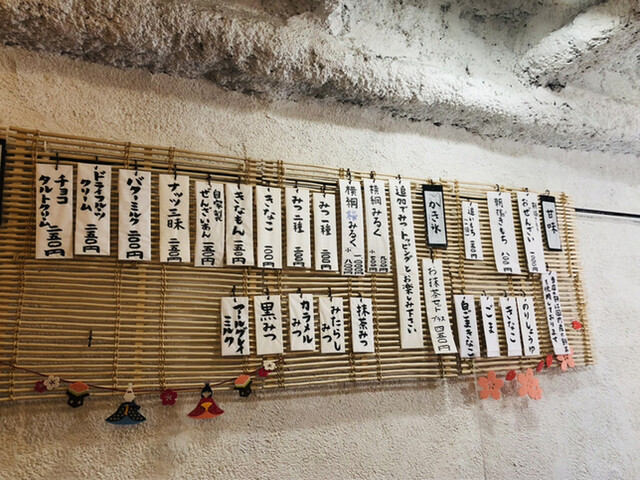 甘味
おぜんざい
朝搗きもち
追いもち
のりしょうゆ
きなこ
ごま
白ごまきなこ
お抹茶セット プラス 四五〇円
かき氷
追加でみつトッピングとお楽しみ下さい
横綱みるく
横綱桜みるく
みつ一種
みつ二種
きなこ 一〇〇円
きなもん 二五〇円
自家製
ぜんざいあん
ナッツ三昧 二五〇円
バターミルク 二〇〇円
ドライフルーツ
クリーム 二五〇円
チョコ
タルトクリーム 二五〇円
抹茶みつ
みたらし
みつ
カラメル
みつ
黒みつ
アールグレイ
ミルク